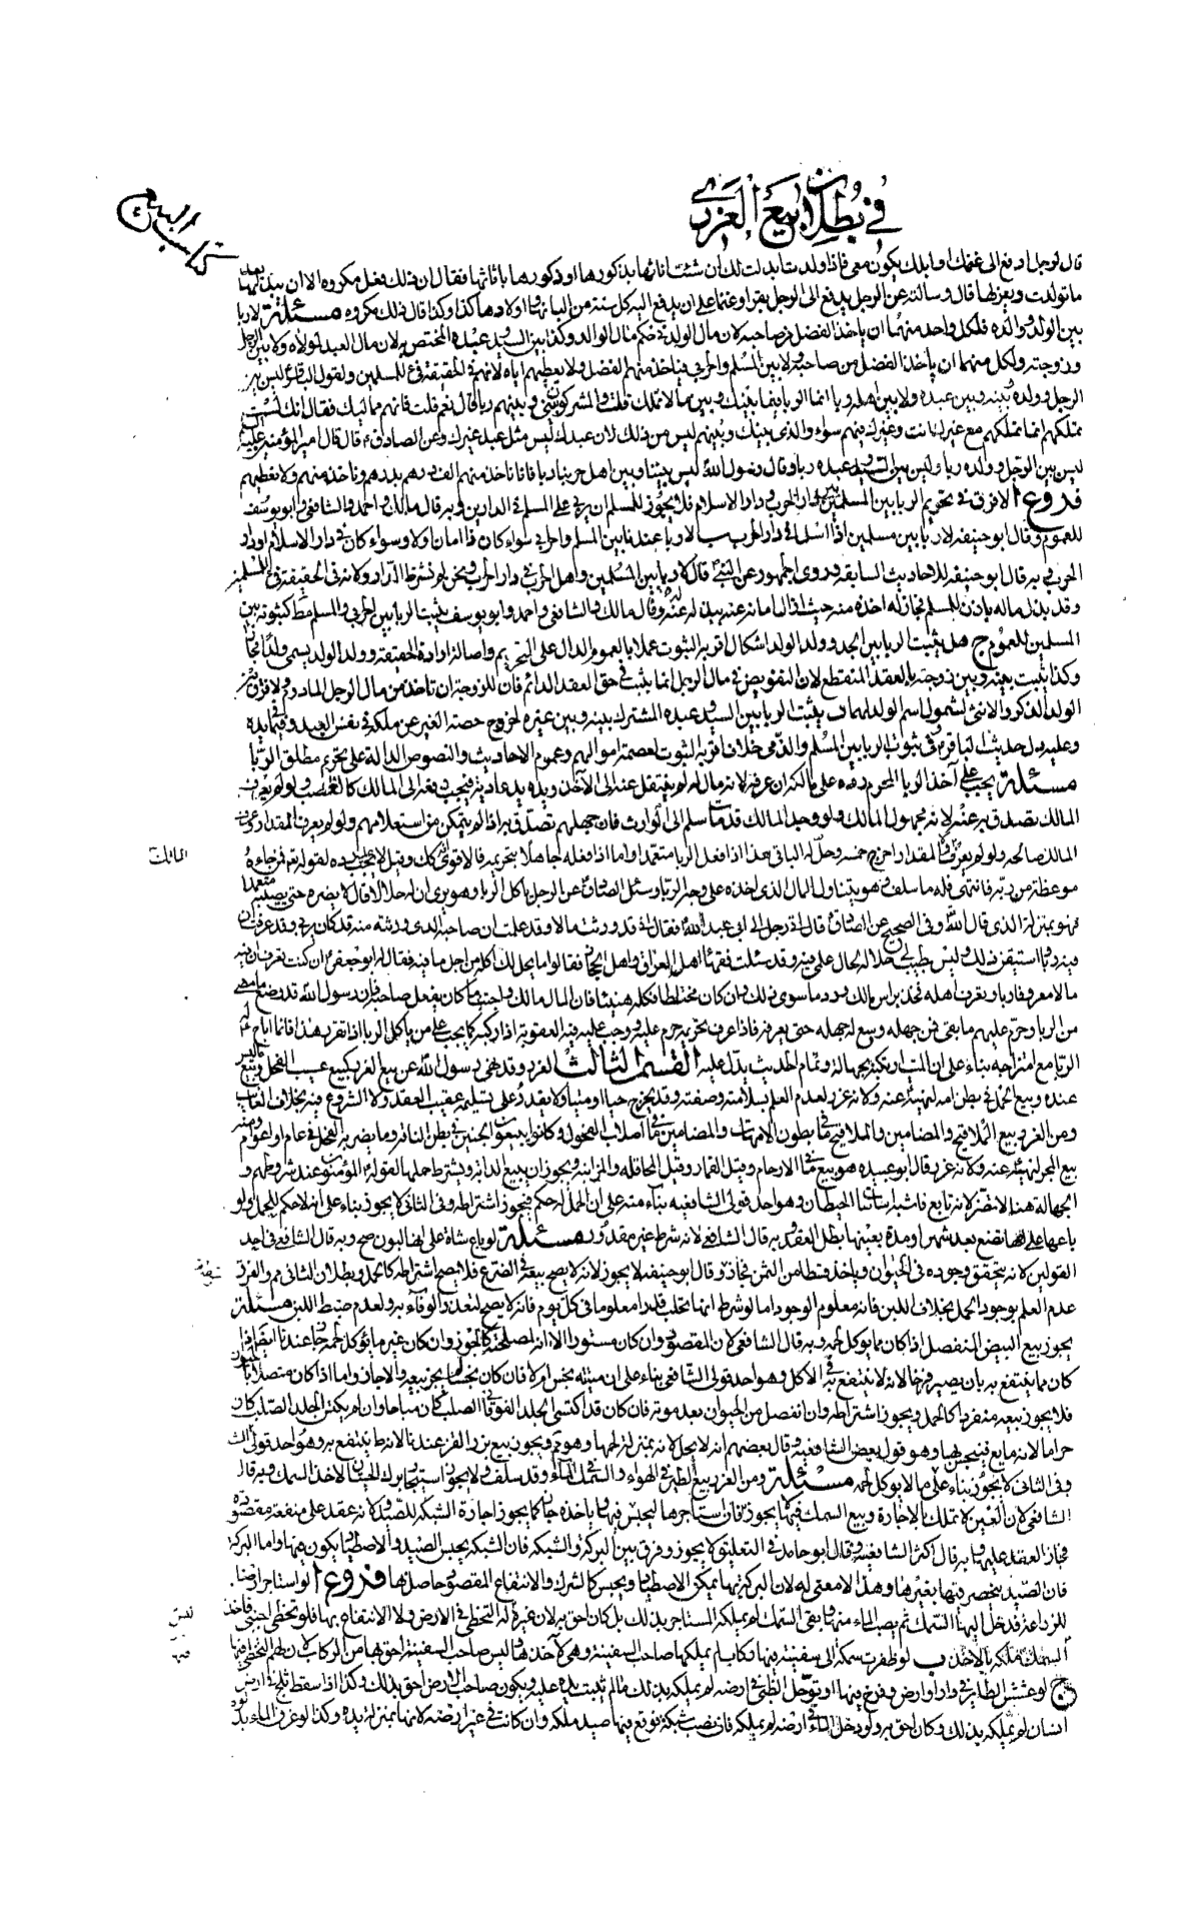 في بطلان بيع الغرر
كتاب البيع
قال لرجل ادفع الى غنمك وابلك يكون معى فاذا ولدت ابدلت لك ان شئت اناثها بذكورها او ذكورها باناثها فقال ان ذلك فعل مكروه الا ان يبدلها بعد
ما تولدت ويعزلها قال وسالته عن الرجل يدفع الى الرجل بقرا وغنما على ان يدفع اليه كل سنة من البانها واولادها كذا وكذا قال ذلك مكروه مسئلة لا ربا
بين الولد ووالده فلكل واحد منهما ان ياخذ الفضل من صاحبه لان مال الولد فى حكم مال الوالد وكذا بين السيد وعبده المختص به لان مال العبد لمولاه ولا بين الرجل
وزوجته ولكل منهما ان ياخذ الفضل من صاحبه ولا بين المسلم والحربى فياخذ منهم الفضل ولا يعطيهم اياه لانهم فى الحقيقة فىء للمسلمين ولقول الباقر ليس بين
الرجل وولده وبينه وبين عبده ولا بين اهله ربا انما الربا فيما بينك وبين ما لا تملك قلت والمشركون بينى وبينهم ربا قال نعم قلت فانهم مماليك فقال انك لست
تملكهم انما تملكهم مع غيرك انت وغيرك فيهم سواء والذى بينك وبينهم ليس من ذلك لان عبدك ليس مثل عبد غيرك وعن الصادق قال قال امير المؤمنين عليه
ليس بين الرجل وولده ربا وليس بين السيد وعبده ربا وقال رسول الله ليس بيننا وبين اهل حربنا ربا فانا ناخذ منهم الف درهم بدرهم وناخذ منهم ولا نعطيهم
فروع ا لا فرق فى تحريم الربا بين المسلمين بين دار الحرب ودار الاسلام فلا يجوز للمسلم ان يربى على المسلم فى الدارين وبه قال مالك واحمد والشافعى وابو يوسف
للعموم وقال ابو حنيفة لا ربا بين مسلمين اذا اسلما فى دار الحرب ب لا ربا عندنا بين المسلم والحربى سواء كان ذا امان او لا وسواء كان فى دار الاسلام او دار
الحرب وبه قال ابو حنيفة للاحاديث السابقة وروى الجمهور عن النبى قال لا ربا بين المسلمين واهل الحرب فى دار الحرب ونحن لم نشرط الدار ولانه فى الحقيقة فىء للمسلمين
وقد بذل ماله باذن للمسلم فجاز له اخذه منه حيث ازال امانه عنه ببذله له وقال مالك والشافعى واحمد وابو يوسف يثبت الربا بين الحربى والمسلم كثبوته بين
المسلمين للعموم ج هل يثبت الربا بين الجد وولد الولد اشكال اقربه الثبوت عملا بالعموم الدال على التحريم واصالة ارادة الحقيقة وولد الولد يسمى ولدا مجازا
وكذا يثبت بينه وبين زوجته بالعقد المنقطع لان التفويض فى مال الرجل انما يثبت فى حق العقد الدائم فان للزوجة ان تاخذ من مال الرجل المادوم ولا فرق بين
الولد الذكر والانثى لشمول اسم الولد لهما د يثبت الربا بين السيد وعبده المشترك بينه وبين غيره لخروج حصة الغير عن ملكه فى نفس العبد وفيما بيده
وعليه دل حديث الباقر ه فى ثبوت الربا بين المسلم والذمى خلاف اقربه الثبوت لعصمة اموالهم وعموم الاحاديث والنصوص الدالة على تحريم مطلق الربا
مسئلة يجب على آخذ الربا المحرم رده على مالكه ان عرفه لانه مال له لم ينتقل عنه الى الآخذ ويده يد عادية فيجب دفعه الى المالك كالغصب ولو لم يعرف
المالك تصدق به عنه لانه مجهول المالك ولو وجد المالك قد مات سلم الى الوارث فان جهلهم تصدق به اذا لم يتمكن من استعلامهم ولو لم يعرف المقدار وعرف
المالك صالحه ولو لم يعرف المقدار اخرج خمسه وحل له الباقى هذا اذا فعل الربا متعمدا واما اذا فعله جاهلا بتحريمه فالاقوى انه كك وقيل لا يجب رده لقوله تع فمن جاءه
موعظة من ربه فانتهى فله ما سلف وهو يتناول المال الذى اخذه على وجه الربا وسئل الصادق عن الرجل ياكل الربا وهو يرى انه حلال قال لا يضره حتى يصيبه متعمدا
فهو بمنزلة الذى قال الله وفى الصحيح عن الصادق قال اتى رجل الى ابى عبد الله فقال انى قد ورثت مالا وقد علمت ان صاحبه الذى ورثته منه قد كان يربى وقد عرف ان
فيه ربا استيقن ذلك وليس يطيب لى حلاله لحال علمى فيه وقد سئلت فقهاء اهل العراق واهل الحجاز فقالوا ما يحل لك اكله من اجل ما فيه فقال له ابو جعفر ان كنت تعرف ان فيه
مالا معروفا ربا وتعرف اهله فخذ براس مالك ورد ما سوى ذلك وان كان مختلطا فكله هنيئا فان المال مالك واجتنب ما كان يفعل صاحبه فان رسول الله قد وضع ما مضى
من الربا وحرم عليهم ما بقى فمن جهله وسع له جهله حتى يعرفه فاذا عرف تحريمه حرم عليه ووجب عليه فيه العقوبة اذا ركبه كما يجب على من ياكل الربا اذا تقرر هذا فانما اباح له
الربا مع امتزاجه بناء على ان الميت ارتكبه بجهالة وتمام الحديث يدل عليه القسم الثالث الغرر وقد نهى رسول الله عن بيع الغرر كبيع عسيب الفحل وبيع ما ليس
عنده وبيع الحمل فى بطن امه لنهيه عنه ولانه غرر لعدم العلم بسلامته وصفته وقد يخرج حيا او ميتا ولا يقدر على تسليمه عقيب العقد ولا الشروع فيه بخلاف الغائب
ومن الغرر بيع الملاقيح والمضامين والملاقيح ما فى بطون الامهات والمضامين ما فى اصلاب الفحول وكانوا يبيعون الجنين فى بطن الناقة وما يضربه الفحل فى عام او اعوام ومنه
بيع المجر لنهيه عنه ولانه غرر قال ابو عبيدة هو بيع ما فى الارحام وقيل القمار وقيل المحاقلة والمزابنة ويجوز ان يبيع الدابة ويشترط حملها لقوله المؤمنون عند شروطهم و
الجهالة هنا لا تضر لانه تابع فاشبه اساسات الحيطان وهو احد قولى الشافعية بناء منه على ان الحمل له حكم فيجوز اشتراطه وفى الثانى لا يجوز بناء على انه لا حكم للحمل ولو
باعها على انها تضع بعد شهر او مدة بعينها بطل العقد وبه قال الشافعى لانه شرط غير مقدور مسئلة لو باع شاة على انها لبون صح وبه قال الشافعى فى احد
القولين لانه يتحقق وجوده فى الحيوان وياخذ قسطا من الثمن فجاز وقال ابو حنيفة لا يجوز لانه لا يصح بيعه فى الضرع فلا يصح اشتراطه كالحمل وبطلان الثانى مم والفرق
عدم العلم بوجود الحمل بخلاف اللبن فانه معلوم الوجود اما لو شرط انها تحلب قدرا معلوما فى كل يوم فانه لا يصح لتعذر الوفاء به ولعدم ضبط اللبن مسئلة
يجوز بيع البيض المنفصل اذا كان مما يوكل لحمه وبه قال الشافعى لان المقصود وان كان مستورا الا انه لمصلحته كالجوز وان كان غير ما يؤكل لحمه جاز عندنا ايضا اذا
كان مما ينتفع به بان يصير فرخا لانه لا ينتفع به فى الاكل وهو احد قولى الشافعى بناء على ان منيه نجس ام لا فان كان نجسا لم يجز بيعه والا جاز واما اذا كان متصلا بالحيوان
فلا يجوز بيعه منفردا كالحمل ويجوز اشتراطه وان انفصل من الحيوان بعد موته فان كان قد اكتسى الجلد الفوقانى الصلب كان مباحا وان لم يكتس الجلد الصلب كان
حراما لانه مايع فينجس بها وهو قول بعض الشافعية وقال بعضهم انه لا يحل لانه بمنزلة لحمها وهو مم ويجوز بيع بزر القز عندنا لانه طاهر ينتفع به وهو احد قولى الشافعى
وفى الثانى لا يجوز بناء على ما لا يوكل لحمه مسئلة ومن الغرر بيع الطير فى الهواء والسمك فى الماء وقد سلف ولا يجوز استيجار برك الحيتان لاخذ السمك وبه قال
الشافعى لان العين لا تملك بالاجارة وبيع السمك فيها لا يجوز فان استاجرها ليحبس فيها ما ياخذه جاز كما يجوز اجارة الشبكة للصيد ولانه عقد على منفعة مقصودة
فجاز العقد عليها وبه قال اكثر الشافعية وقال ابو حامد فى التعليق لا يجوز وفرق بين البركة والشبكة فان الشبكة يحبس الصيد والاصطياد يكون بها واما البركة
فان الصيد ينحصر فيها بغيرها وهذا لا معنى له لان البركة بها يمكن الاصطياد ويحبس كالشرك والانتفاع المقصود حاصل بها فروع ا لو استاجر ارضا
للزراعة فدخل اليها السمك ثم نضب الماء منها وبقى السمك لم يملكه المستاجر بذلك بل كان احق به لان غيره لا له التخطى فى الارض ولا الانتفاع بها فلو تخطى اجنبى فاخذ
السمك ملكه بالاخذ ب لو ظفرت سمكة الى سفينة فيها ركاب لم يملكها صاحب السفينة وهى لآخذها وليس صاحب السفينة احق بها من الركاب لان لهم التخطى فيها
ج لو عشش الطاير فى دار او ارض وفرخ فيها او توحل الظبى فى ارضه لم يملكه بذلك ما لم تثبت يده عليه ويكون صاحب الارض احق بذلك وكذا اذا سقط ثلج فى ارض
انسان لم يملكه بذلك وكان احق به ولو دخل الماء فى ارضه لم يملكه فان نصب شبكة فوقع فيها صيد ملكه وان كانت فى غير ارضه لانها بمنزلة يده وكذا لو غرق الماء
ليس
فيها